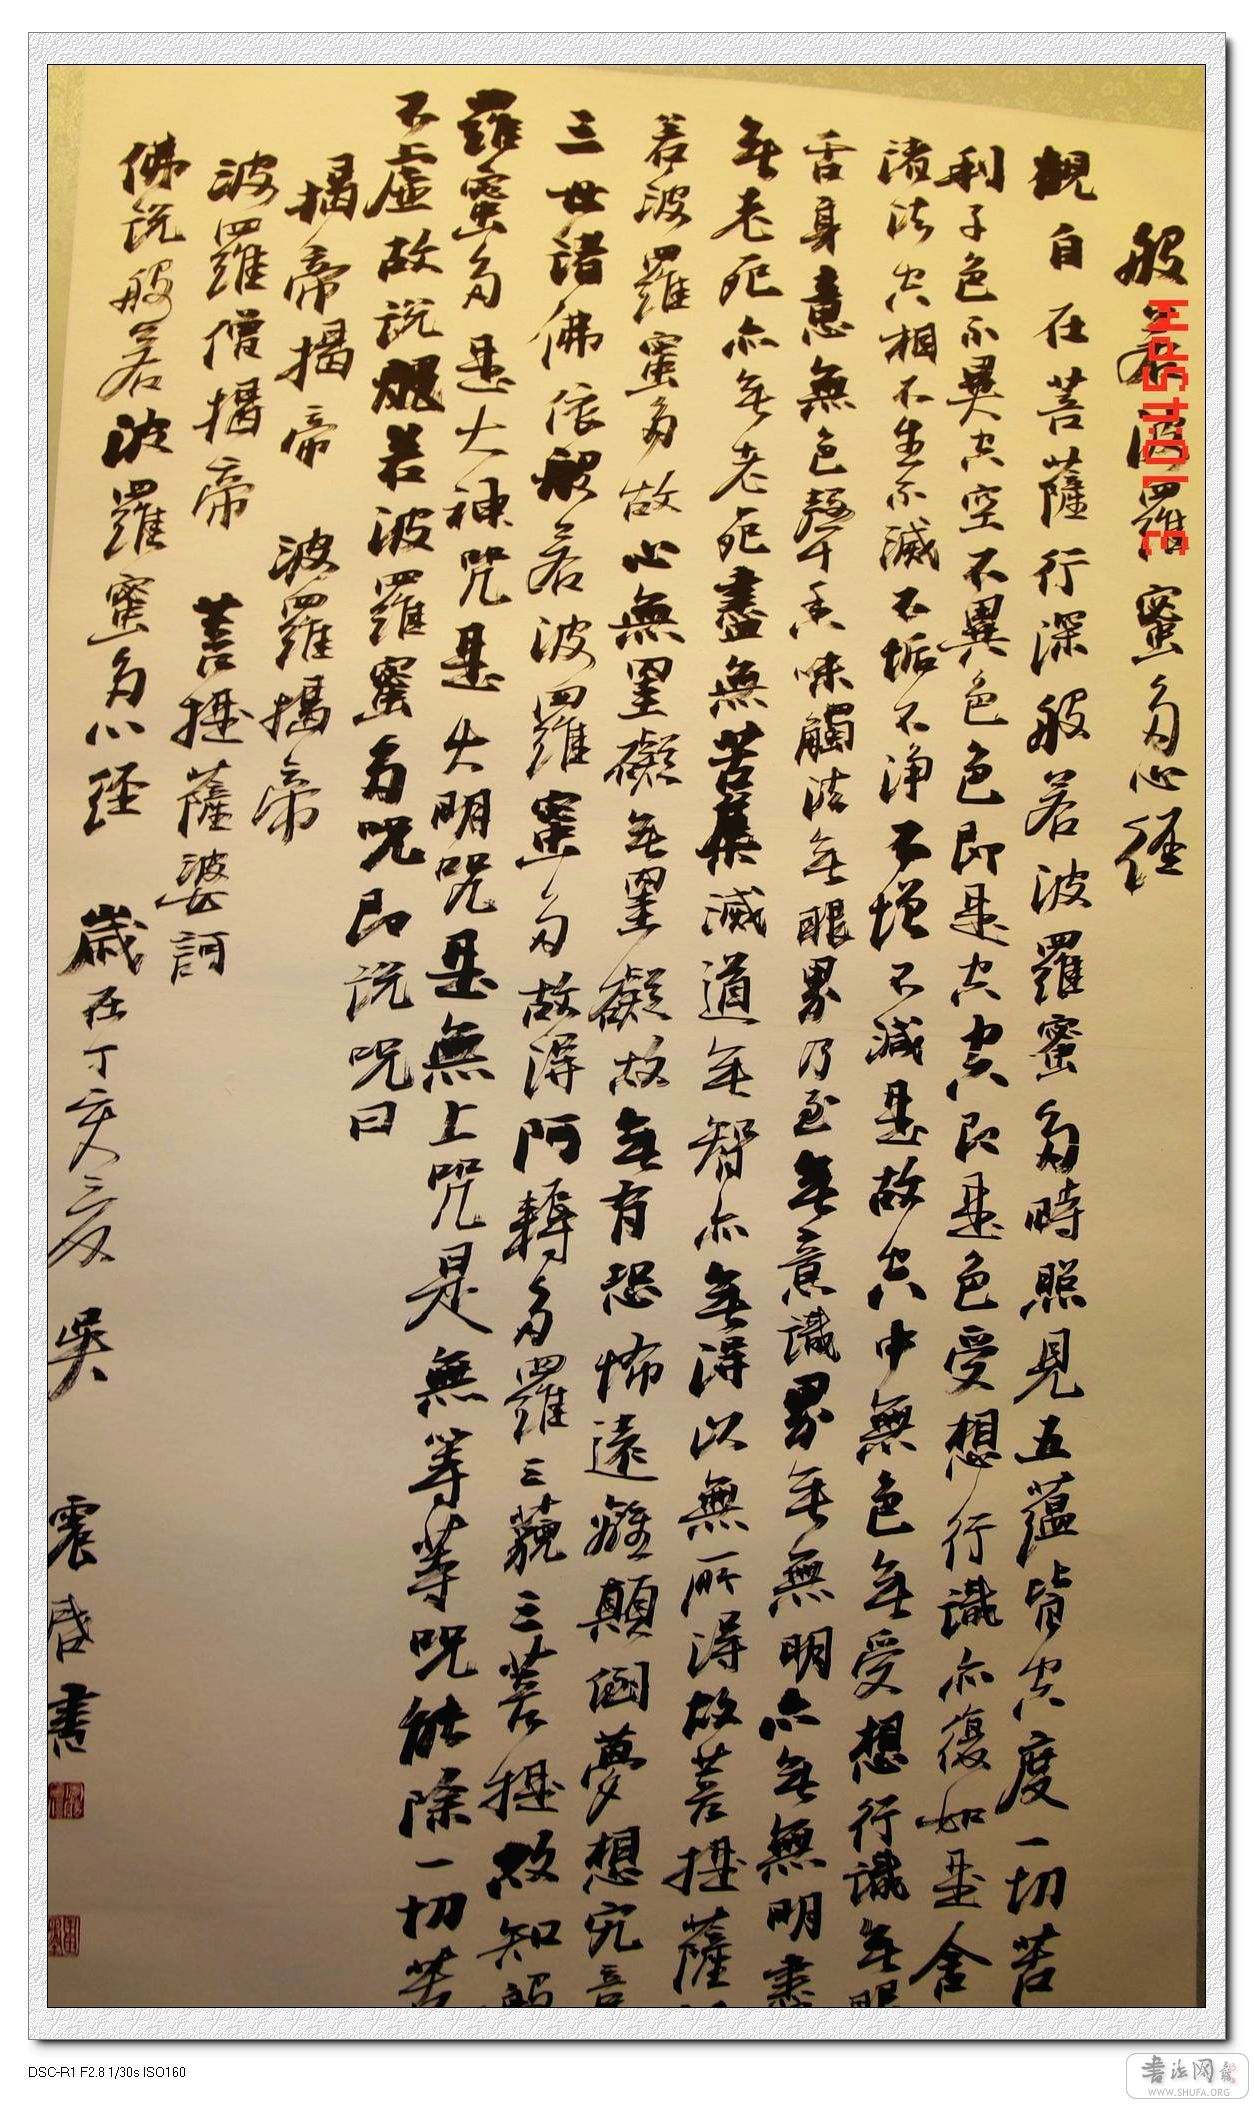 般若波羅蜜多心經
觀自在菩薩行深般若波羅蜜多時照見五蘊皆空度一切苦
利子色不異空空不異色色即是空空即是色受想行識亦復如是舍
諸法空相不生不滅不垢不净不增不減是故空中無色無受想行識無眼
舌身意無色聲香味觸法無眼界乃至無意識界無無明亦無無明盡
無老死亦無老死盡無苦集滅道無智亦無得以無所得故菩提薩
若波羅蜜多故心無罣礙無罣礙故無有恐怖遠離顛倒夢想究竟
三世諸佛依般若波羅蜜多故得阿耨多羅三藐三菩提故知般
羅蜜多是大神咒是大明咒是無上咒是無等等咒能除一切苦
不虛故說般若波羅蜜多咒即說咒曰
揭帝揭帝 波羅揭帝
波羅僧揭帝 菩提薩婆訶
佛説般若波羅蜜多心經 歲在丁亥之夏 吴 震启書
3 10:45PM
DSC-R1 F2.8 1/30s ISO160
书法网
WWW.SHUFA.ORG